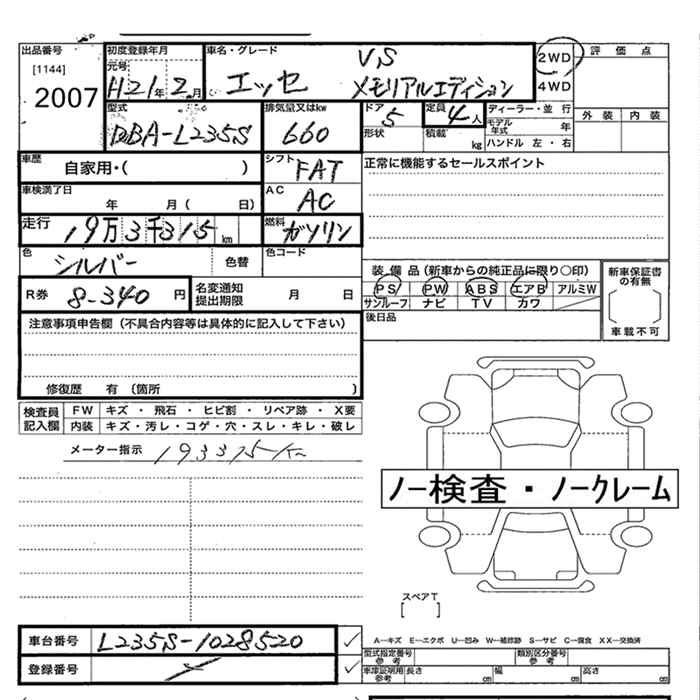 出品番号 初度登録年月 車名・グレード 2WD 評価点
[1144] 元号 VS 4WD
2007 H21年 2月 エッセ メモリアルエディション
型式 排気量又はkw ドア 定員 ディーラー・並行 外装 内装
DBA-L235S 660 5 4人 モデル年式 年
形状 積載 kg ハンドル 左・右
車歴 自家用・( ) シフト FAT 正常に機能するセールスポイント
車検満了日 年 月( 日) AC AC
走行 19万3千315km 燃料 ガソリン
色 シルバー 色替 色コード
装備品(新車からの純正品に限り○印) 新車保証書の有無
R券 8-340円 名変通知提出期限 月 日 PS PW ABS エアB アルミW
サンルーフ ナビ TV カワ
[ ]
注意事項申告欄(不具合内容等は具体的に記入して下さい) 後日品 車載不可
修復歴 有 (箇所 )
検査員記入欄 FW キズ・飛石・ヒビ割・リペア跡・X要
内装 キズ・汚レ・コゲ・穴・スレ・キレ・破レ
メーター指示 193315km
ノー検査・ノークレーム
スペアT
[ ]
車台番号 L235S-1028520 A…キズ E…エクボ U…凹み W…補修跡 S…サビ C…腐食 XX…交換済
型式指定番号 参考 類別区分番号 参考
登録番号 車庫証明用 参考 長さ cm 幅 cm 高さ cm